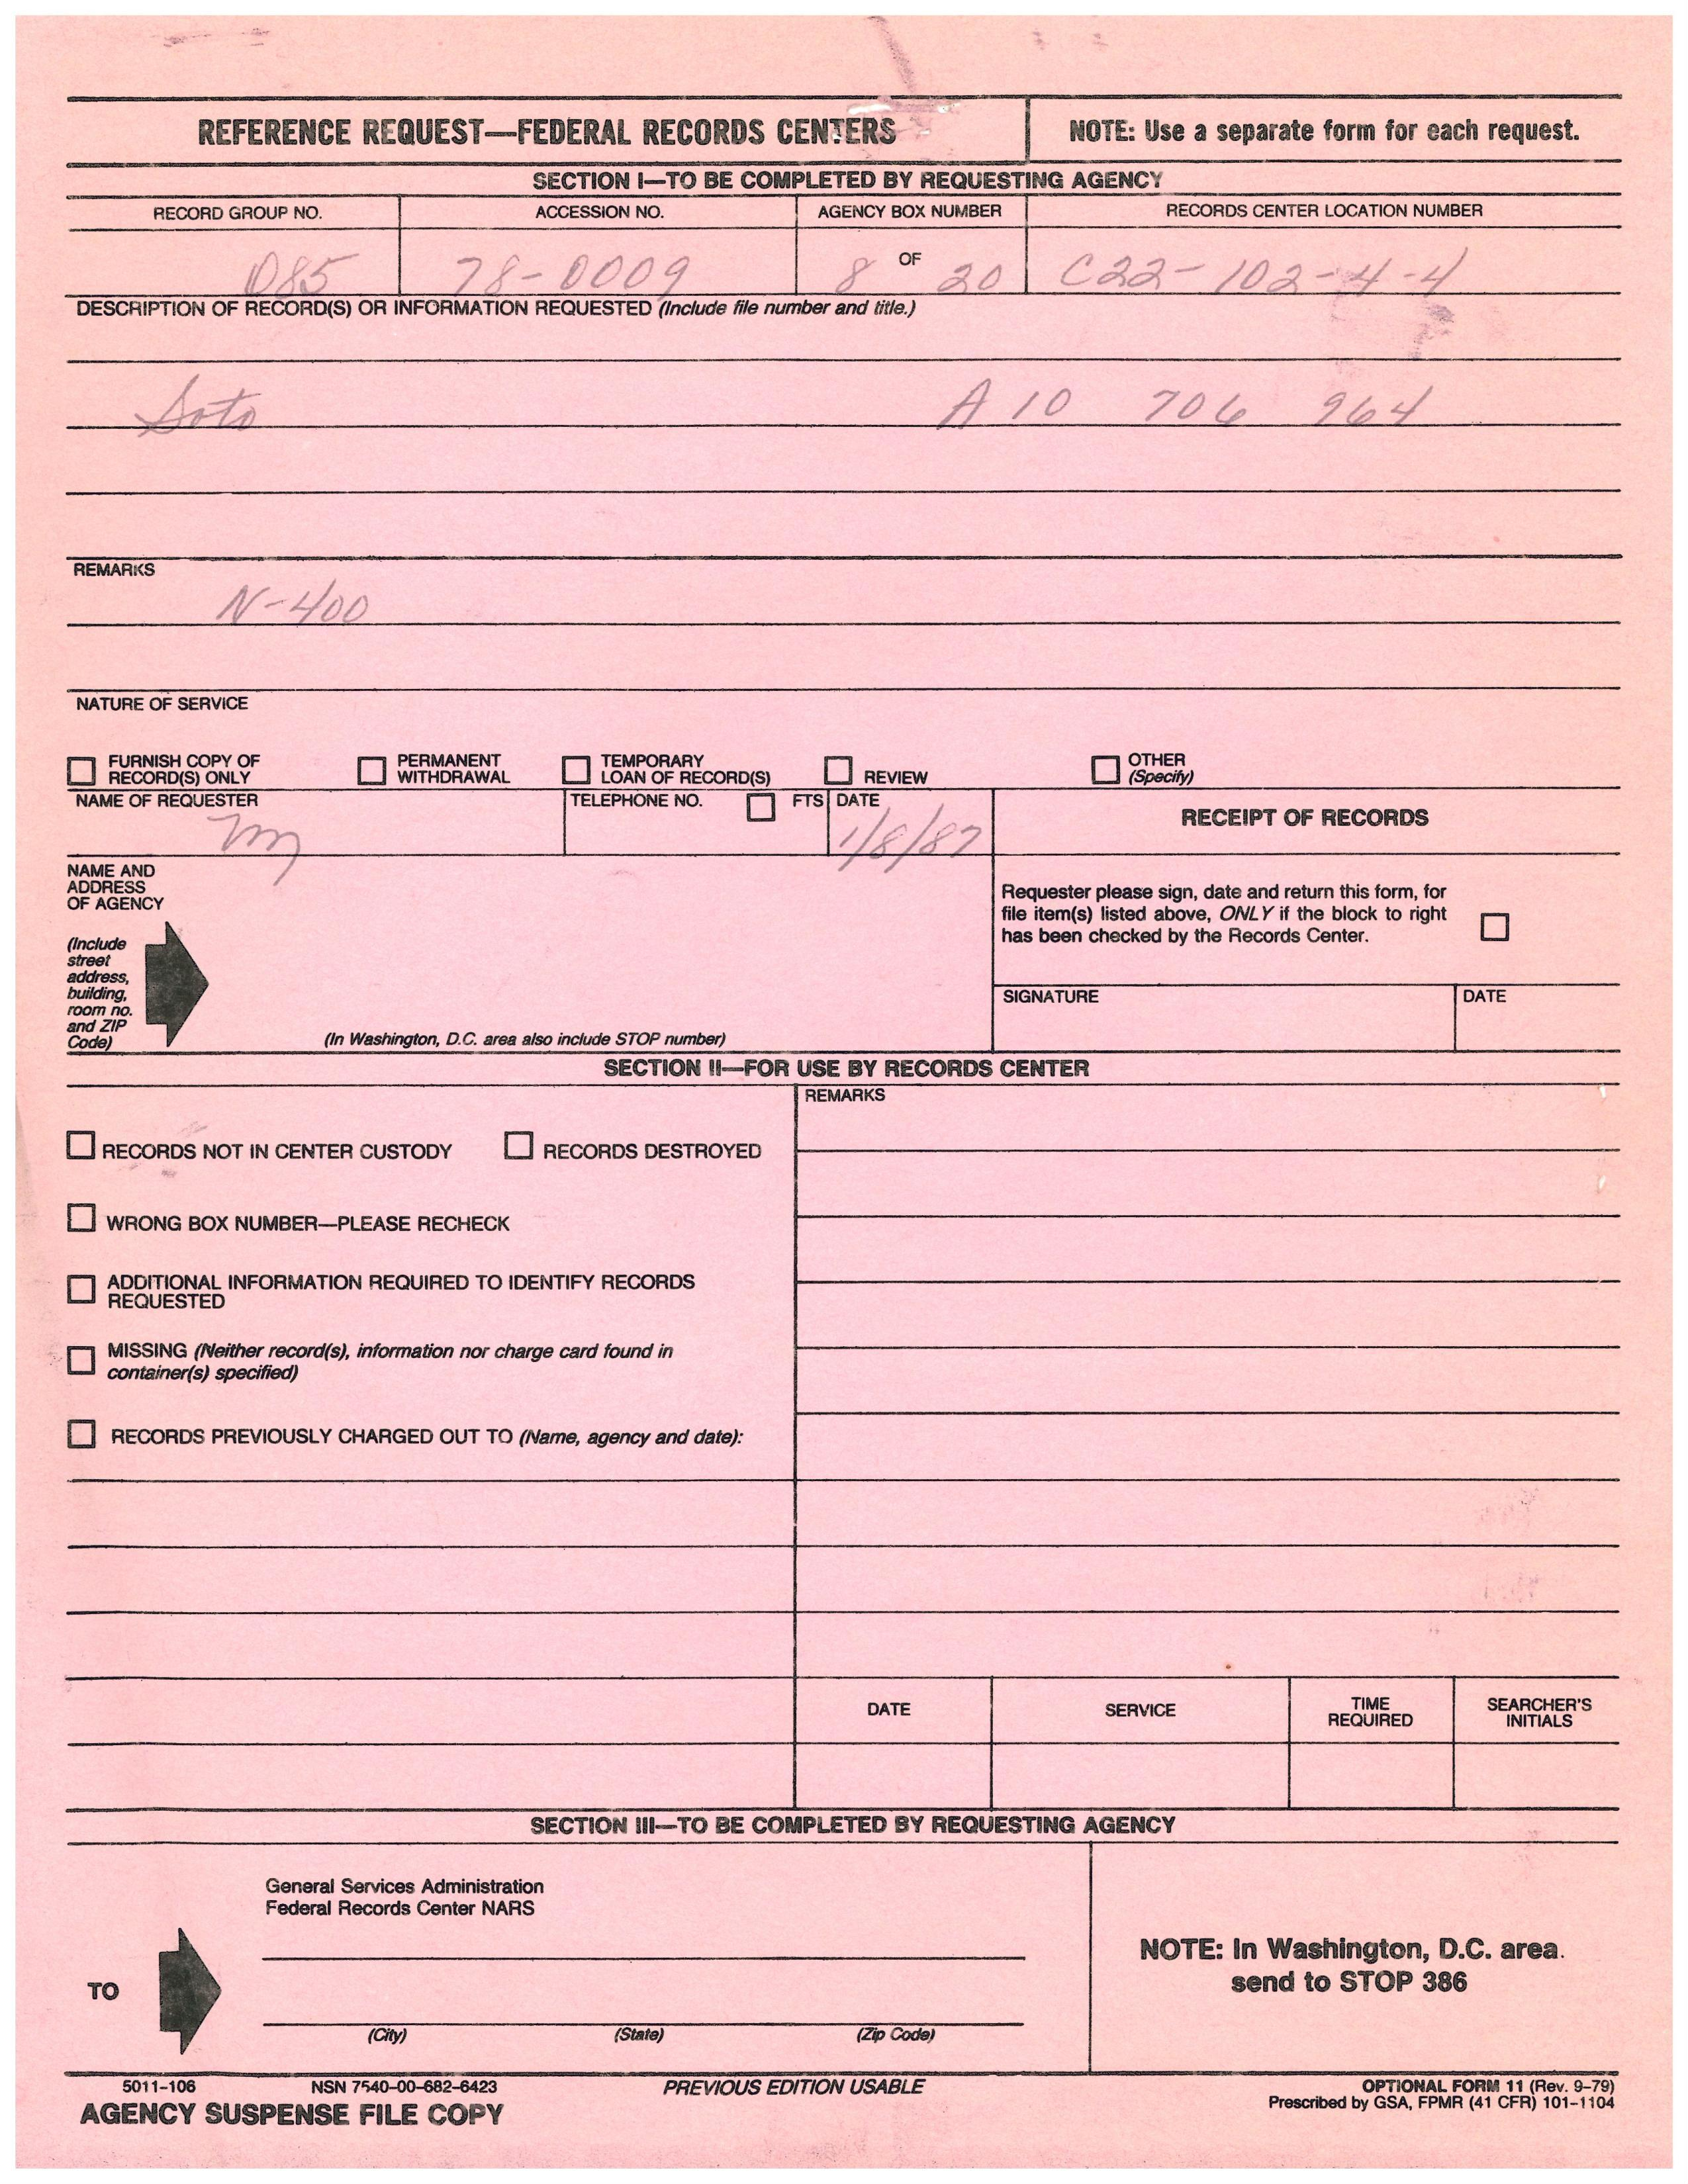 REFERENCE REQUEST—FEDERAL RECORDS CENTERS
NOTE: Use a separate form for each request.
SECTION I—TO BE COMPLETED BY REQUESTING AGENCY
RECORD GROUP NO.
ACCESSION NO.
AGENCY BOX NUMBER
RECORDS CENTER LOCATION NUMBER
085
78-0009
8 OF 20
C22-102-4-4
DESCRIPTION OF RECORD(S) OR INFORMATION REQUESTED (Include file number and title.)
Soto A 10 706 964
REMARKS
N-400
NATURE OF SERVICE
FURNISH COPY OF
RECORD(S) ONLY
PERMANENT
WITHDRAWAL
TEMPORARY
LOAN OF RECORD(S)
REVIEW
OTHER
(Specify)
NAME OF REQUESTER
TELEPHONE NO.
FTS
DATE
1/8/87
RECEIPT OF RECORDS
NAME AND
ADDRESS
OF AGENCY
(Include
street
address,
building,
room no.
and ZIP
Code)
(In Washington, D.C. area also include STOP number)
Requester please sign, date and return this form, for
file item(s) listed above, ONLY if the block to right
has been checked by the Records Center.
SIGNATURE
DATE
SECTION II—FOR USE BY RECORDS CENTER
RECORDS NOT IN CENTER CUSTODY
RECORDS DESTROYED
WRONG BOX NUMBER—PLEASE RECHECK
ADDITIONAL INFORMATION REQUIRED TO IDENTIFY RECORDS
REQUESTED
MISSING (Neither record(s), information nor charge card found in
container(s) specified)
RECORDS PREVIOUSLY CHARGED OUT TO (Name, agency and date):
REMARKS
DATE
SERVICE
TIME
REQUIRED
SEARCHER'S
INITIALS
SECTION III—TO BE COMPLETED BY REQUESTING AGENCY
TO
General Services Administration
Federal Records Center NARS
(City) (State) (Zip Code)
NOTE: In Washington, D.C. area.
send to STOP 386
5011-106 NSN 7540-00-682-6423 PREVIOUS EDITION USABLE
AGENCY SUSPENSE FILE COPY
OPTIONAL FORM 11 (Rev. 9-79)
Prescribed by GSA, FPMR (41 CFR) 101-1104